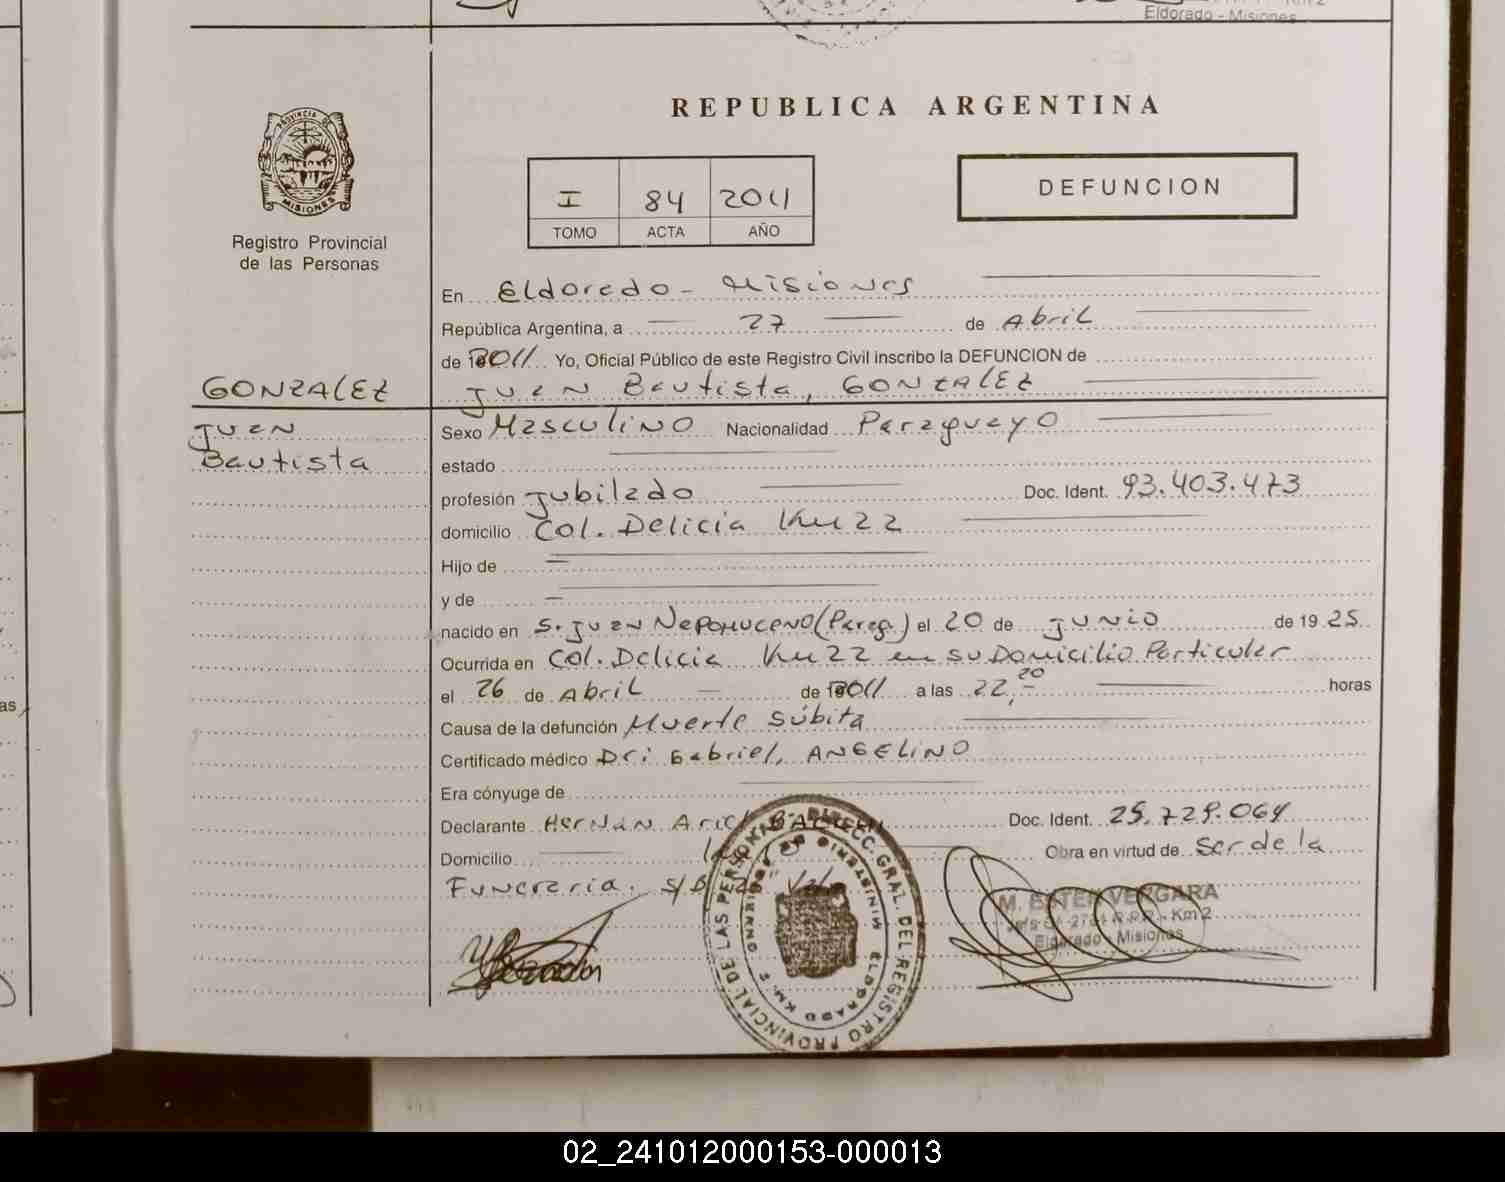 Eldorado - Misiones
REPUBLICA ARGENTINA
PROVINCIA DE
MISIONES
Registro Provincial
de las Personas
I 84 2011
TOMO ACTA AÑO
DEFUNCION
En Eldorado - Misiones
República Argentina, a 27 de Abril
de 2011 Yo, Oficial Público de este Registro Civil inscribo la DEFUNCION de
GONZALEZ
Juan Bautista, GONZALEZ
Juan
Bautista
Sexo Masculino Nacionalidad Paraguayo
estado
profesión Jubilado Doc. Ident. 93.403.473
domicilio Col. Delicia Km 22
Hijo de
y de
nacido en S. Juan Nepomuceno (Parag.) el 20 de Junio de 1925
Ocurrida en Col. Delicia Km 22 en su Domicilio Particular
el 26 de Abril de 2011 a las 22,20 horas
Causa de la defunción Muerte Súbita
Certificado médico Dr: Gabriel, ANGELINO
Era cónyuge de
Declarante Hernán Ariel Doc. Ident. 25.729.064
Domicilio Obra en virtud de Ser de la
Funeraria.
DIRECC. GRAL. DEL REGISTRO PROVINCIAL DE LAS PERSONAS
MINISTERIO DE GOBIERNO
ELDORADO KM. 2
M. ESTER VERGARA
Km 2
Eldorado - Misiones
02_241012000153-000013